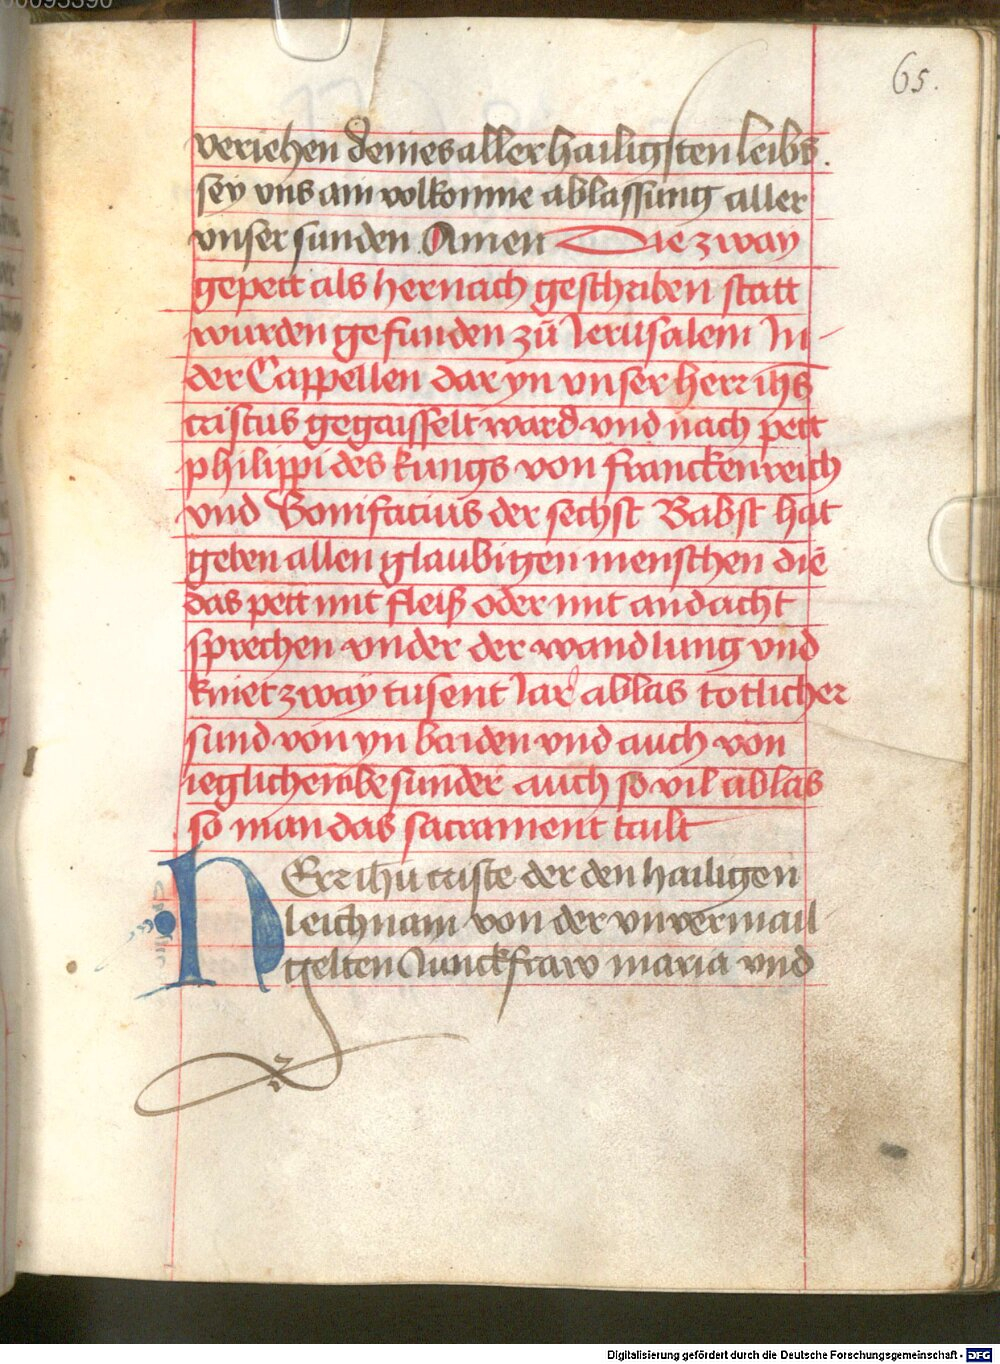 65.
veriehen deines aller hailigsten leibs.
sey vns ain volkomne ablassung aller
vnser sunden Amen Die zway
gepett als hernach geschriben statt
wurden gefunden zů Jerusalem Jn
der Cappellen dar yn vnser herr ihs
cristus gegaisselt ward vnd nach pett
philippi des kungs von franckenreich
vnd Bonifacius der sechst Babst hat
geben allen glaubigen menschen die
das pett mit fleiß oder mit andacht
sprechen vnder der wandlung vnd
kniet zway tusent Jar ablas totlicher
sund von yn baiden vnd auch von
ieglichem besunder auch so vil ablas
so man das sacrament tailt
HErr ihu criste der den hailigen
leichnam von der vnvermail
gelten Junckfraw maria vnd
Digitalisierung gefördert durch die Deutsche Forschungsgemeinschaft - DFG